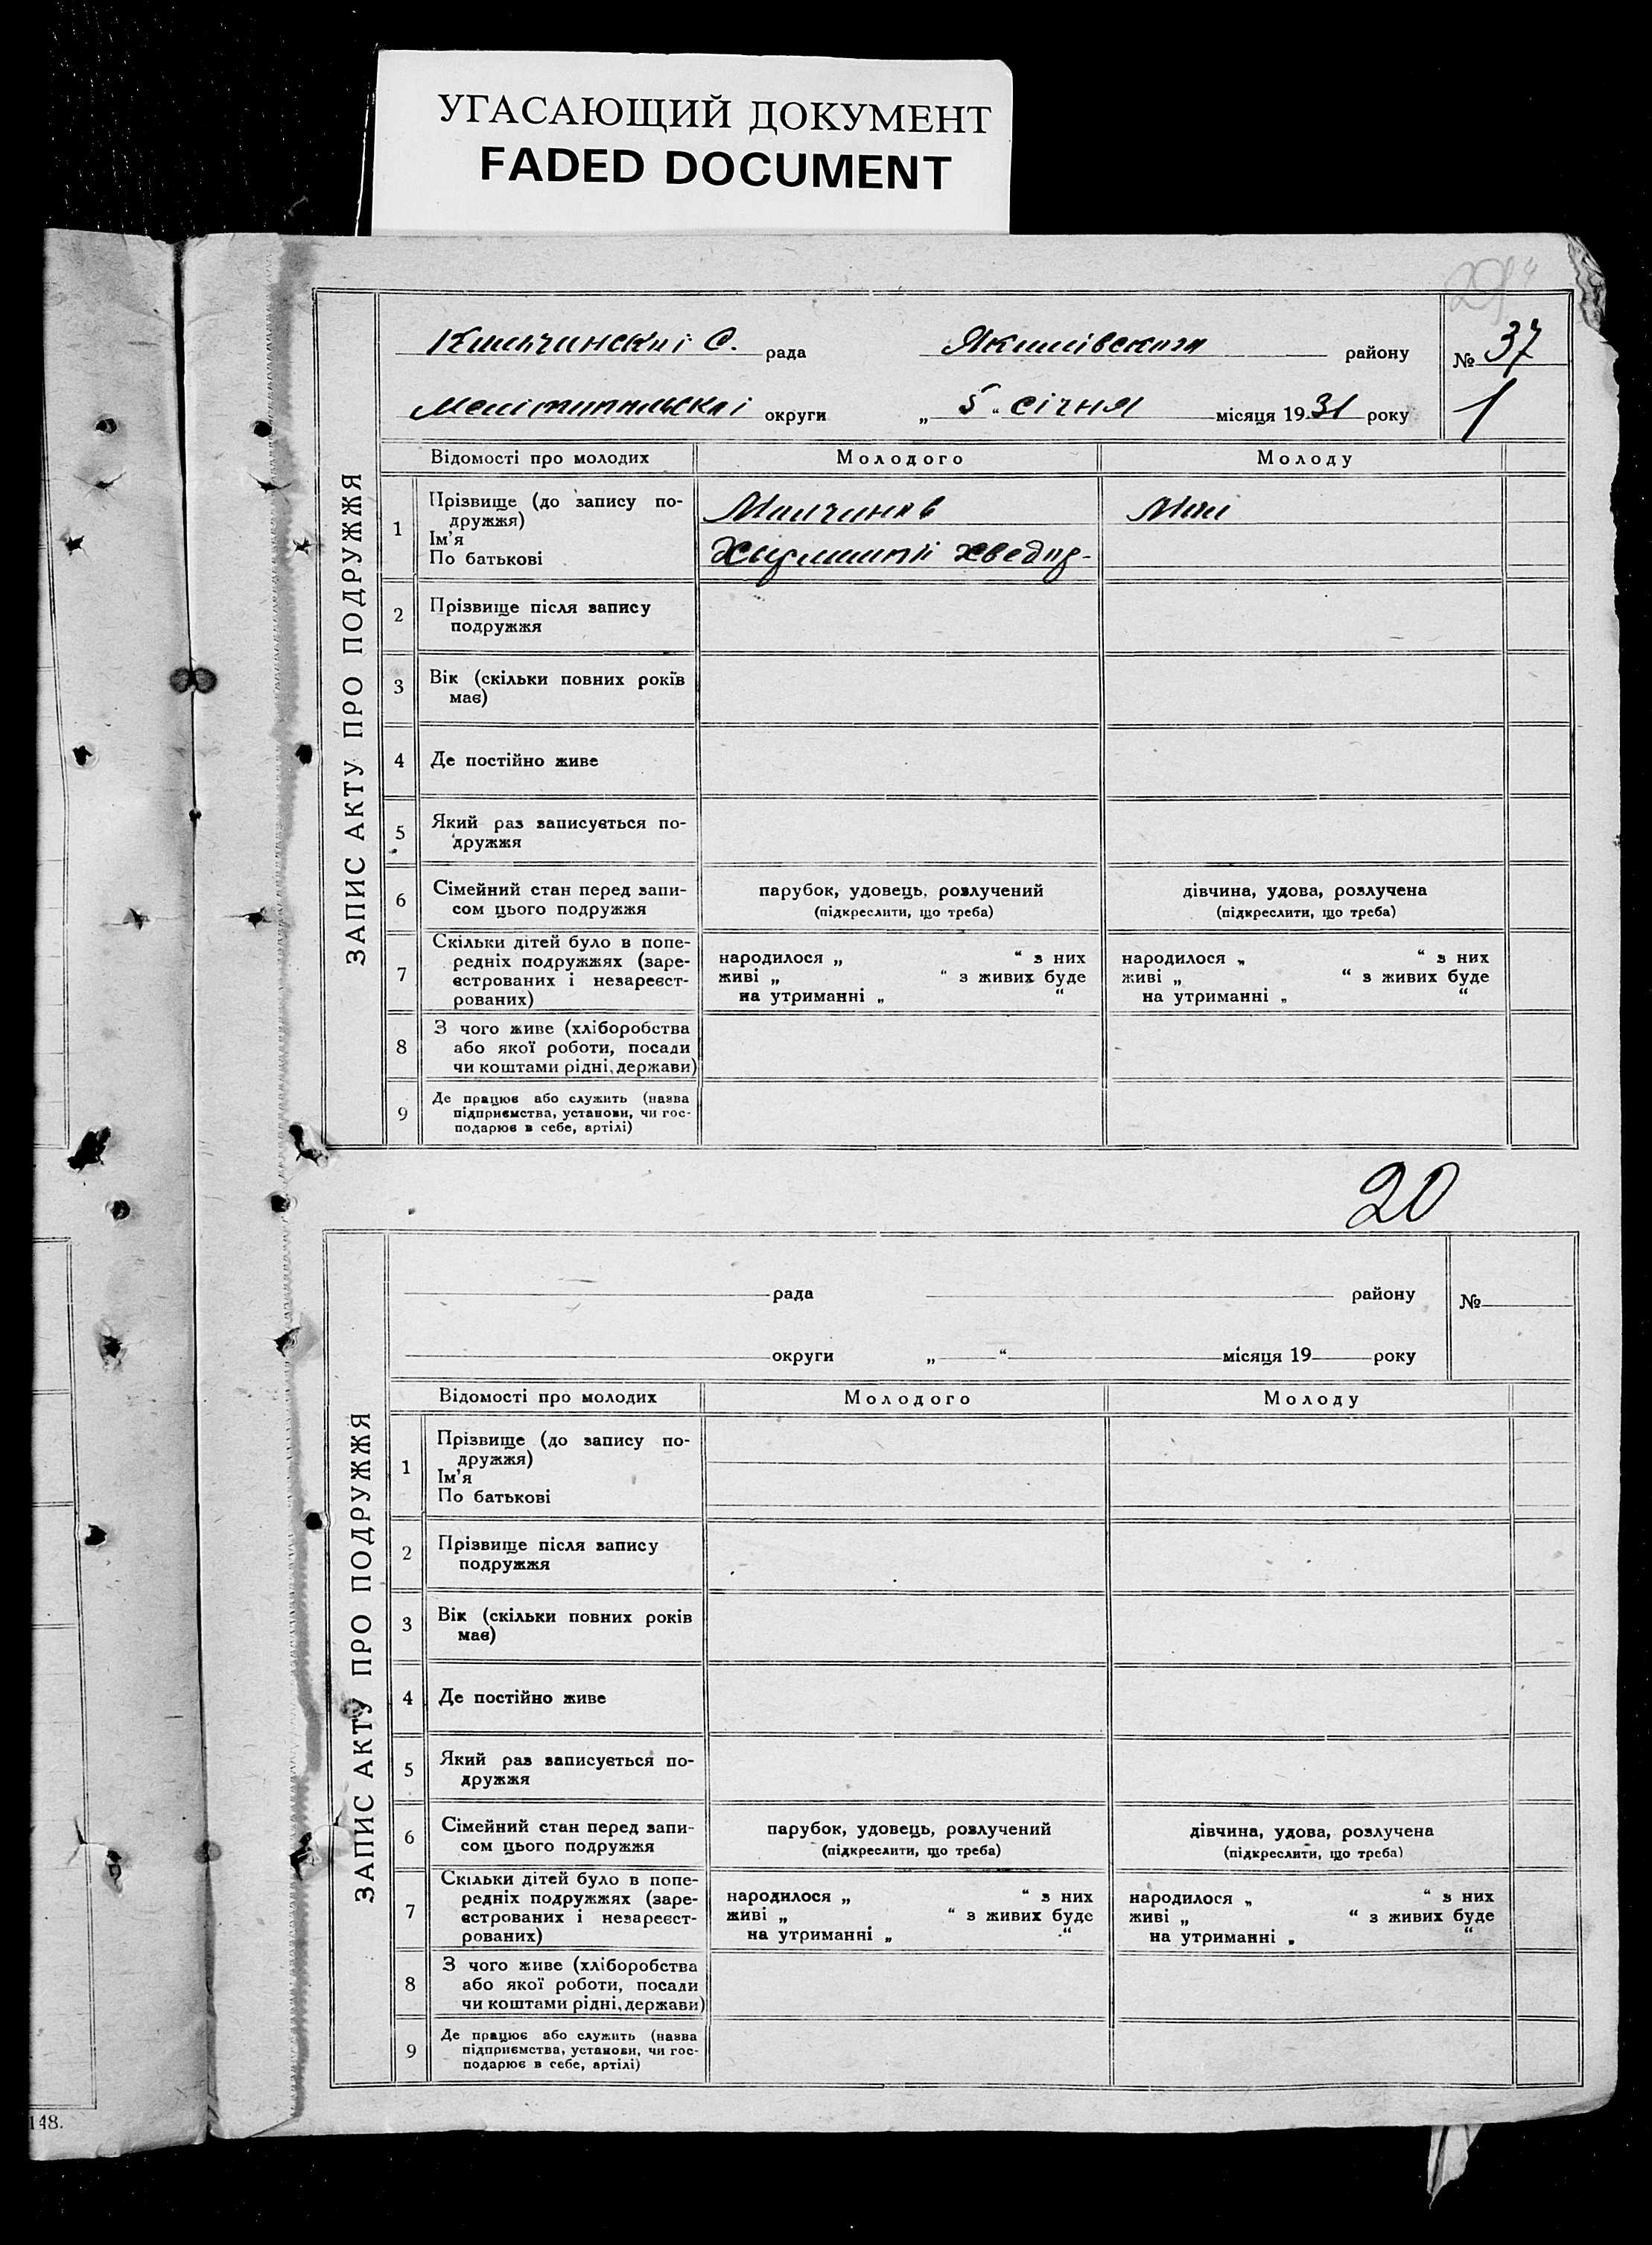 УГАСАЮЩИЙ ДОКУМЕНТ
FADED DOCUMENT
ЗАПИС АКТУ ПРО ПОДРУЖЖЯ
С. рада Якимівского району № 37
Мелітопольскої округи „ 5 “ січня місяця 1931 року 1
Відомості про молодих Молодого Молоду
1 Прізвище (до запису по-
дружжя)
Ім'я
По батькові
2 Прізвище після запису
подружжя
3 Вік (скільки повних років
має)
4 Де постійно живе
5 Який раз записується по-
дружжя
6 Сімейний стан перед запи-
сом цього подружжя
парубок, удовець, розлучений
(підкреслити, що треба)
дівчина, удова, розлучена
(підкреслити, що треба)
7 Скільки дітей було в попе-
редніх подружжях (заре-
єстрованих і незареєст-
рованих)
народилося „ “ з них
живі „ “ з живих буде
на утриманні „ “
народилося „ “ з них
живі „ “ з живих буде
на утриманні „ “
8 З чого живе (хліборобства
або якої роботи, посади
чи коштами рідні, держави)
9 Де працює або служить (назва
підприємства, установи, чи гос-
подарює в себе, артілі)
20
ЗАПИС АКТУ ПРО ПОДРУЖЖЯ
рада району №
округи „ “ місяця 19 року
Відомості про молодих Молодого Молоду
1 Прізвище (до запису по-
дружжя)
Ім'я
По батькові
2 Прізвище після запису
подружжя
3 Вік (скільки повних років
має)
4 Де постійно живе
5 Який раз записується по-
дружжя
6 Сімейний стан перед запи-
сом цього подружжя
парубок, удовець, розлучений
(підкреслити, що треба)
дівчина, удова, розлучена
(підкреслити, що треба)
7 Скільки дітей було в попе-
редніх подружжях (заре-
єстрованих і незареєст-
рованих)
народилося „ “ з них
живі „ “ з живих буде
на утриманні „ “
народилося „ “ з них
живі „ “ з живих буде
на утриманні „ “
8 З чого живе (хліборобства
або якої роботи, посади
чи коштами рідні, держави)
9 Де працює або служить (назва
підприємства, установи, чи гос-
подарює в себе, артілі)
148.